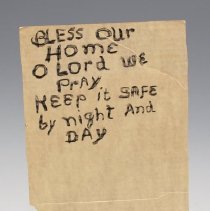 BLESS OUR
HOME
O LORD WE
PRAY
KEEP it SAFE
by night And
DAY